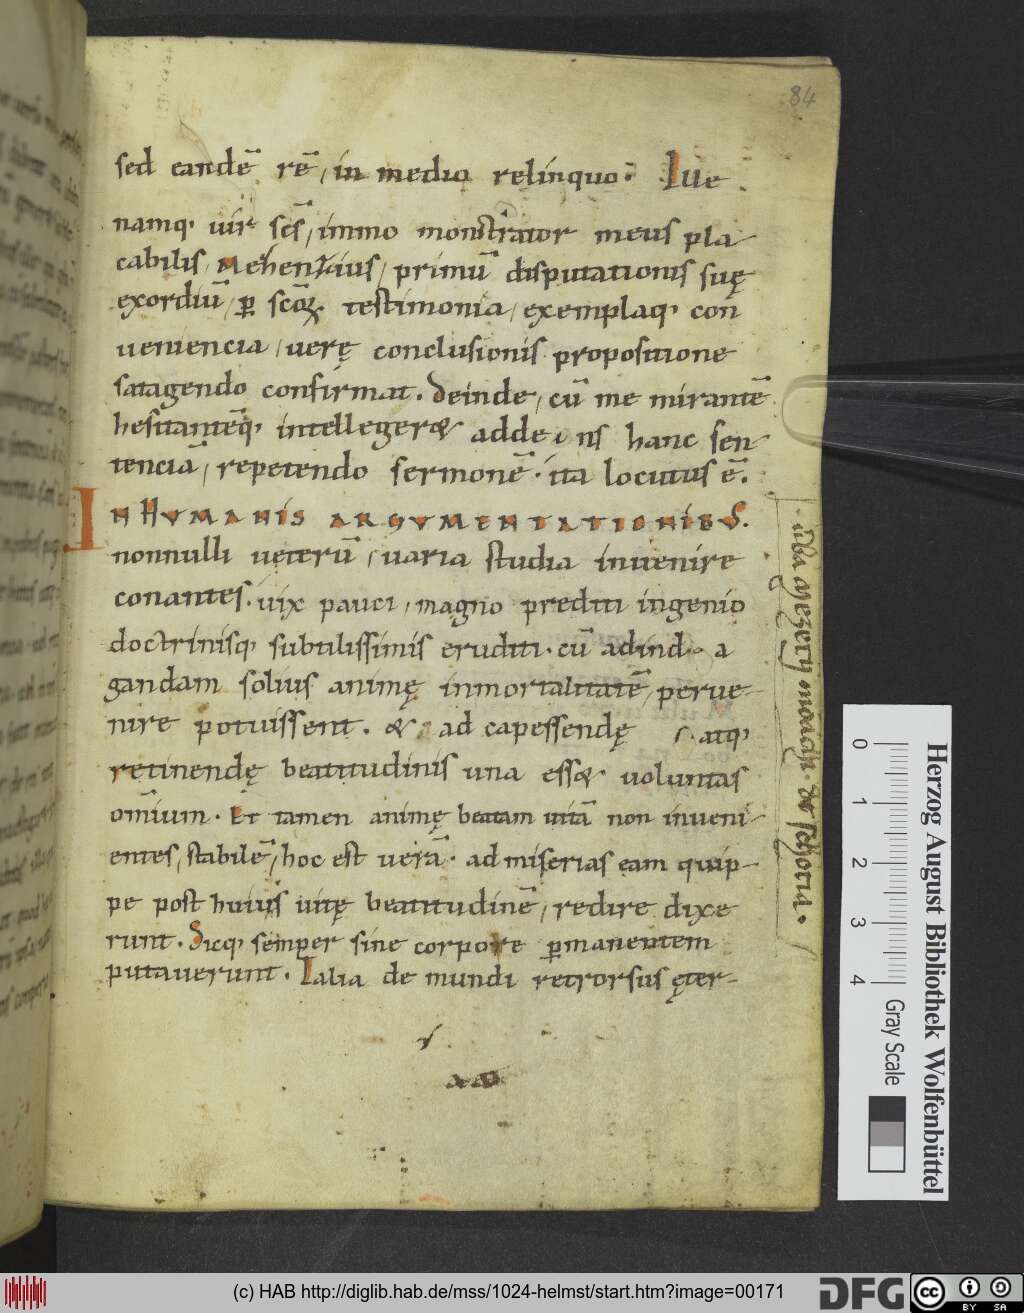 84
sed eandē rē, in medio relinquo. Iue
namq; uir scs̄, immo monstrator meus pla
cabilis, Mehenzaius, primū disputationis suę
exordiū, ꝑ scōꝝ testimonia, exemplaq; con
ueniencia, uerę conclusionis propositione
satagendo confirmat. Deinde, cū me mirantē
hesitantēq; intelleger& adde ns hanc sen
tenciā, repetendo sermonē. ita locutus ē.
IN HVMANIS ARGVMENTATIONIBVS.
nonnulli ueterū, uaria studia inuenire
conantes. uix pauci, magno prediti ingenio
doctrinisq; subtilissimis eruditi. cū ad ind a
gandam solius animę inmortalitatē, perue
nire potuissent. & ad capessendę atq;
retinendę beatitudinis una ess& uoluntas
om̄ium. Et tamen animę beatam uitā non inueni
entes, stabilē, hoc est uerā. ad miserias eam quip
pe post huius uitę beatitudinē, redire dixe
runt. Sicq; semper sine corpore ꝑmanentem
putauerunt. Talia de mundi retrorsus ęter
de schotia.
Herzog August Bibliothek Wolfenbüttel
0 1 2 3 4
Gray Scale
(c) HAB http://diglib.hab.de/mss/1024-helmst/start.htm?image=00171
DFG
cc BY SA